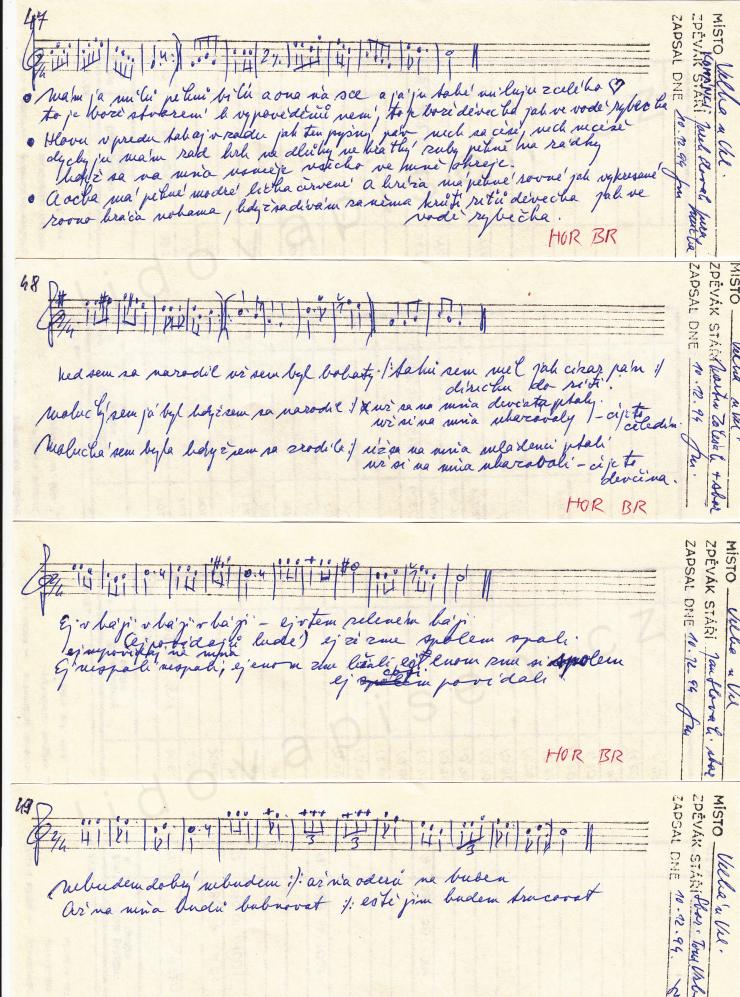 47
mám já milú pěknú bílú a ona ňa sce a já ju také miluju z celého
to je boží stvoření k vypovědění není, to je boží děvečka jak ve vodě rybečka
Hlavu v předu šohaj v zadu jak ten pyšný páv nech sa češe, nech nečeše
dycky ju mám rád krk ne dlúhý ne krátký zuby pěkné na řádky
když sa na mňa usměje všecko ve mně okřeje.
A očka má pěkné modré líčka červené a hříza má pěkné rovné jak vykresané
rovno kráčá nohama, když sa dívám za něma krúti riťú děvečka jak ve
vodě rybečka.
HOR BR
MÍSTO Velká n Vel.
ZPĚVÁK STÁŘÍ
ZAPSAL DNE 10.12.94
48
Ked sem sa narodil už sem byl bohatý :/: takú sem měl jak císař pán :/
direčku do riti!
Malučký sem já byl když sem sa narodil :/ už sa na mňa děvčata ptaly
už si na mňa ukazovaly – čí je to
čeledín.
Malučká sem byla když sem sa zrodila :/ už sa na mňa mládenci ptali
už si na mňa ukazovali – čí je to
děvčina.
HOR BR
MÍSTO Velká n Vel.
ZPĚVÁK STÁŘÍ Martin Zálešák + sbor
ZAPSAL DNE 10.12.94
Ej v háji v háji v háji – ej v tem zeleném háji
(ej povídajú ludé) ej že zme spolem spali.
ej vypovídajú na mňa
Ej nespali nespali, ej enom zme ležali, ej enom zme si spolem
ej cosi povídali.
HOR BR
MÍSTO Velká n Vel
ZPĚVÁK STÁŘÍ Jan Slovák. sbor
ZAPSAL DNE 10.12.94
49
Nebudem dobrý nebudem :/: až ňa oderú na buben
Až na mňa budú bubnovat :/: eště jim budem trucovat
MÍSTO Velká n Vel.
ZPĚVÁK STÁŘÍ Sbor. Tom
ZAPSAL DNE 10.12.94.